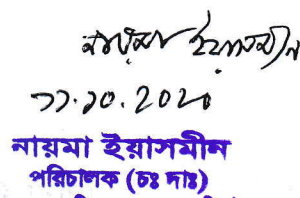 নায়মা ইয়াসমীন
১১.১০.২০২০
নায়মা ইয়াসমীন
পরিচালক (চঃ দাঃ)